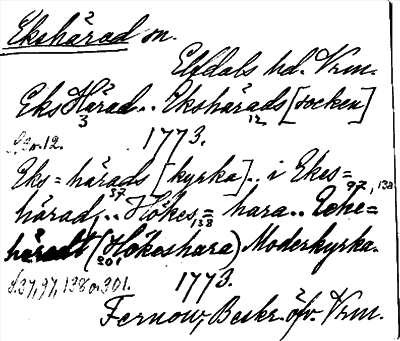 Ekshärad sn.
Elfdals hd. Vrm.
Eks Härad.. Ekshärads [socken]
3 12
S. 3 o. 12. 1773.
Eks=härads [kyrka].. i Ekes=
37 97, 138
härad,.. Hökes= hara.. Eche=
138
häradt (Hökeshara) Moderkyrka.
301
s. 37, 97, 138 o. 301. 1773.
Fernow, Beskr. öfv. Vrm.